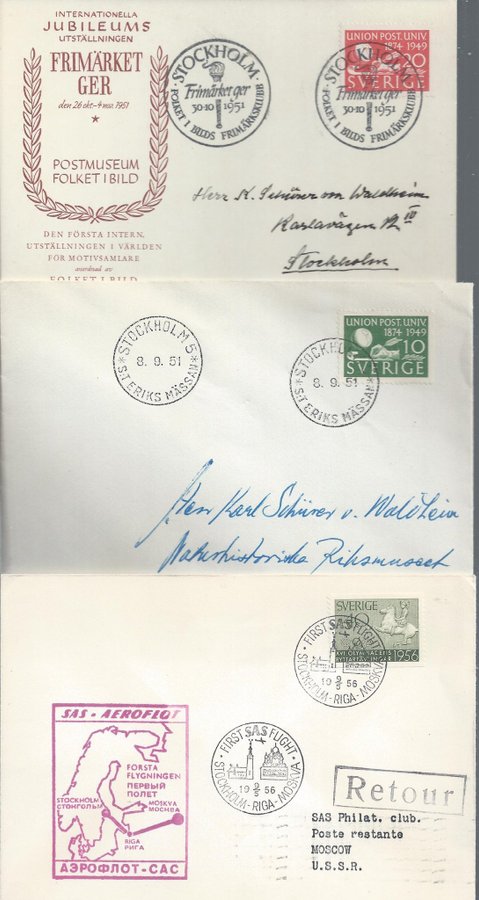 INTERNATIONELLA
JUBILEUMS
UTSTÄLLNINGEN
FRIMÄRKET
GER
den 26 okt-4 nov. 1951
POSTMUSEUM
FOLKET I BILD
DEN FÖRSTA INTERN.
UTSTÄLLNINGEN I VÄRLDEN
FÖR MOTIVSAMLARE
anordnad av
FOLKET I BILD
STOCKHOLM
Frimärket ger
30·10 1951
FOLKET I BILDS FRIMÄRKSKLUBB
UNION POST. UNIV.
1874 1949
20
SVERIGE
STOCKHOLM
Frimärket ger
30·10 1951
FOLKET I BILDS FRIMÄRKSKLUBB
Herr K. Schürer von Waldheim
Karlavägen 12 IV
Stockholm
STOCKHOLM 5
8. 9. 51
S:T ERIKS MÄSSAN
UNION POST. UNIV.
1874 1949
10
SVERIGE
STOCKHOLM
8. 9. 51
S:T ERIKS MÄSSAN
Herr Karl Schürer v. Waldheim
Naturhistoriska Riksmuseet
SVERIGE
40
XVI OLYMPIADENS
RYTTARTÄVLINGAR
1956
FIRST SAS FLIGHT
19 9/5 56
STOCKHOLM-RIGA-MOSKVA
FIRST SAS FLIGHT
19 9/5 56
STOCKHOLM-RIGA-MOSKVA
SAS - AEROFLOT
FÖRSTA
FLYGNINGEN
ПЕРВЫЙ
ПОЛЕТ
STOCKHOLM
СТОКГОЛЬМ
MOSKVA
МОСКВА
RIGA
РИГА
АЭРОФЛОТ-САС
Retour
SAS Philat. club.
Poste restante
MOSCOW
U.S.S.R.